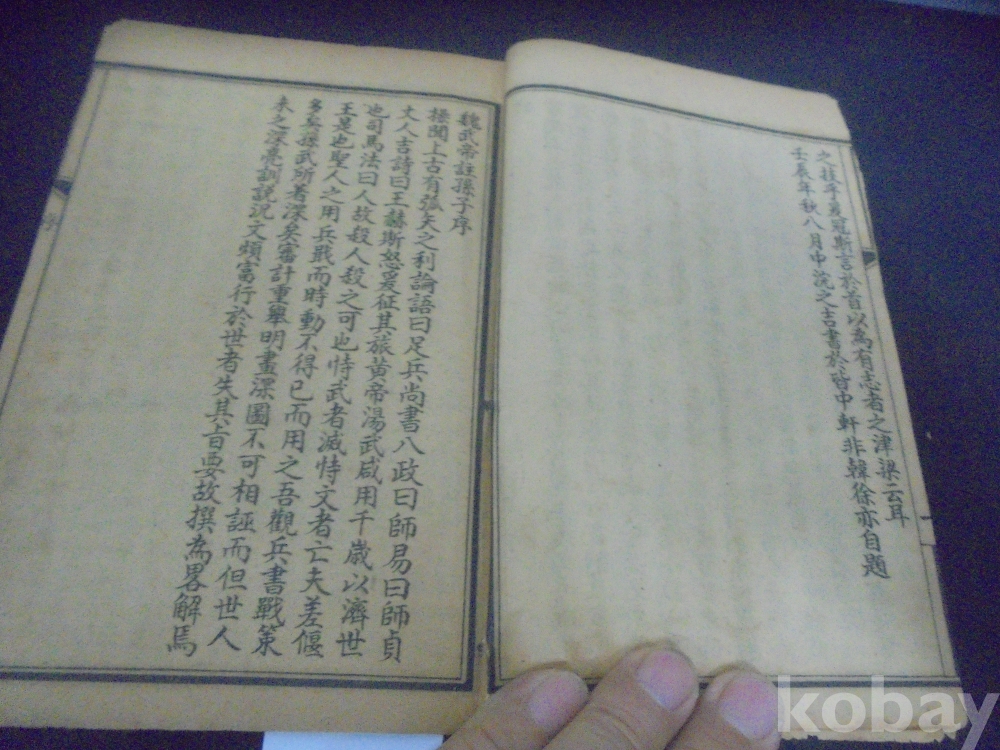 之技乎爰冠斯言於首以為有志者之津梁云耳
壬辰年秋八月中浣之吉書於皆中軒非韓徐亦自題
魏武帝註孫子序
操聞上古有弧矢之利論語曰足兵尚書八政曰師易曰師貞
丈人吉詩曰王赫斯怒爰征其旅黄帝湯武咸用千歲以濟世
也司馬法曰人故殺人殺之可也恃武者滅恃文者亡夫差偃
王是也聖人之用兵戢而時動不得已而用之吾觀兵書戰策
多矣孫武所著深矣審計重舉明畫深圖不可相誣而但世人
未之深亮訓説況文煩富行於世者失其旨要故撰為畧解焉
序
kobay